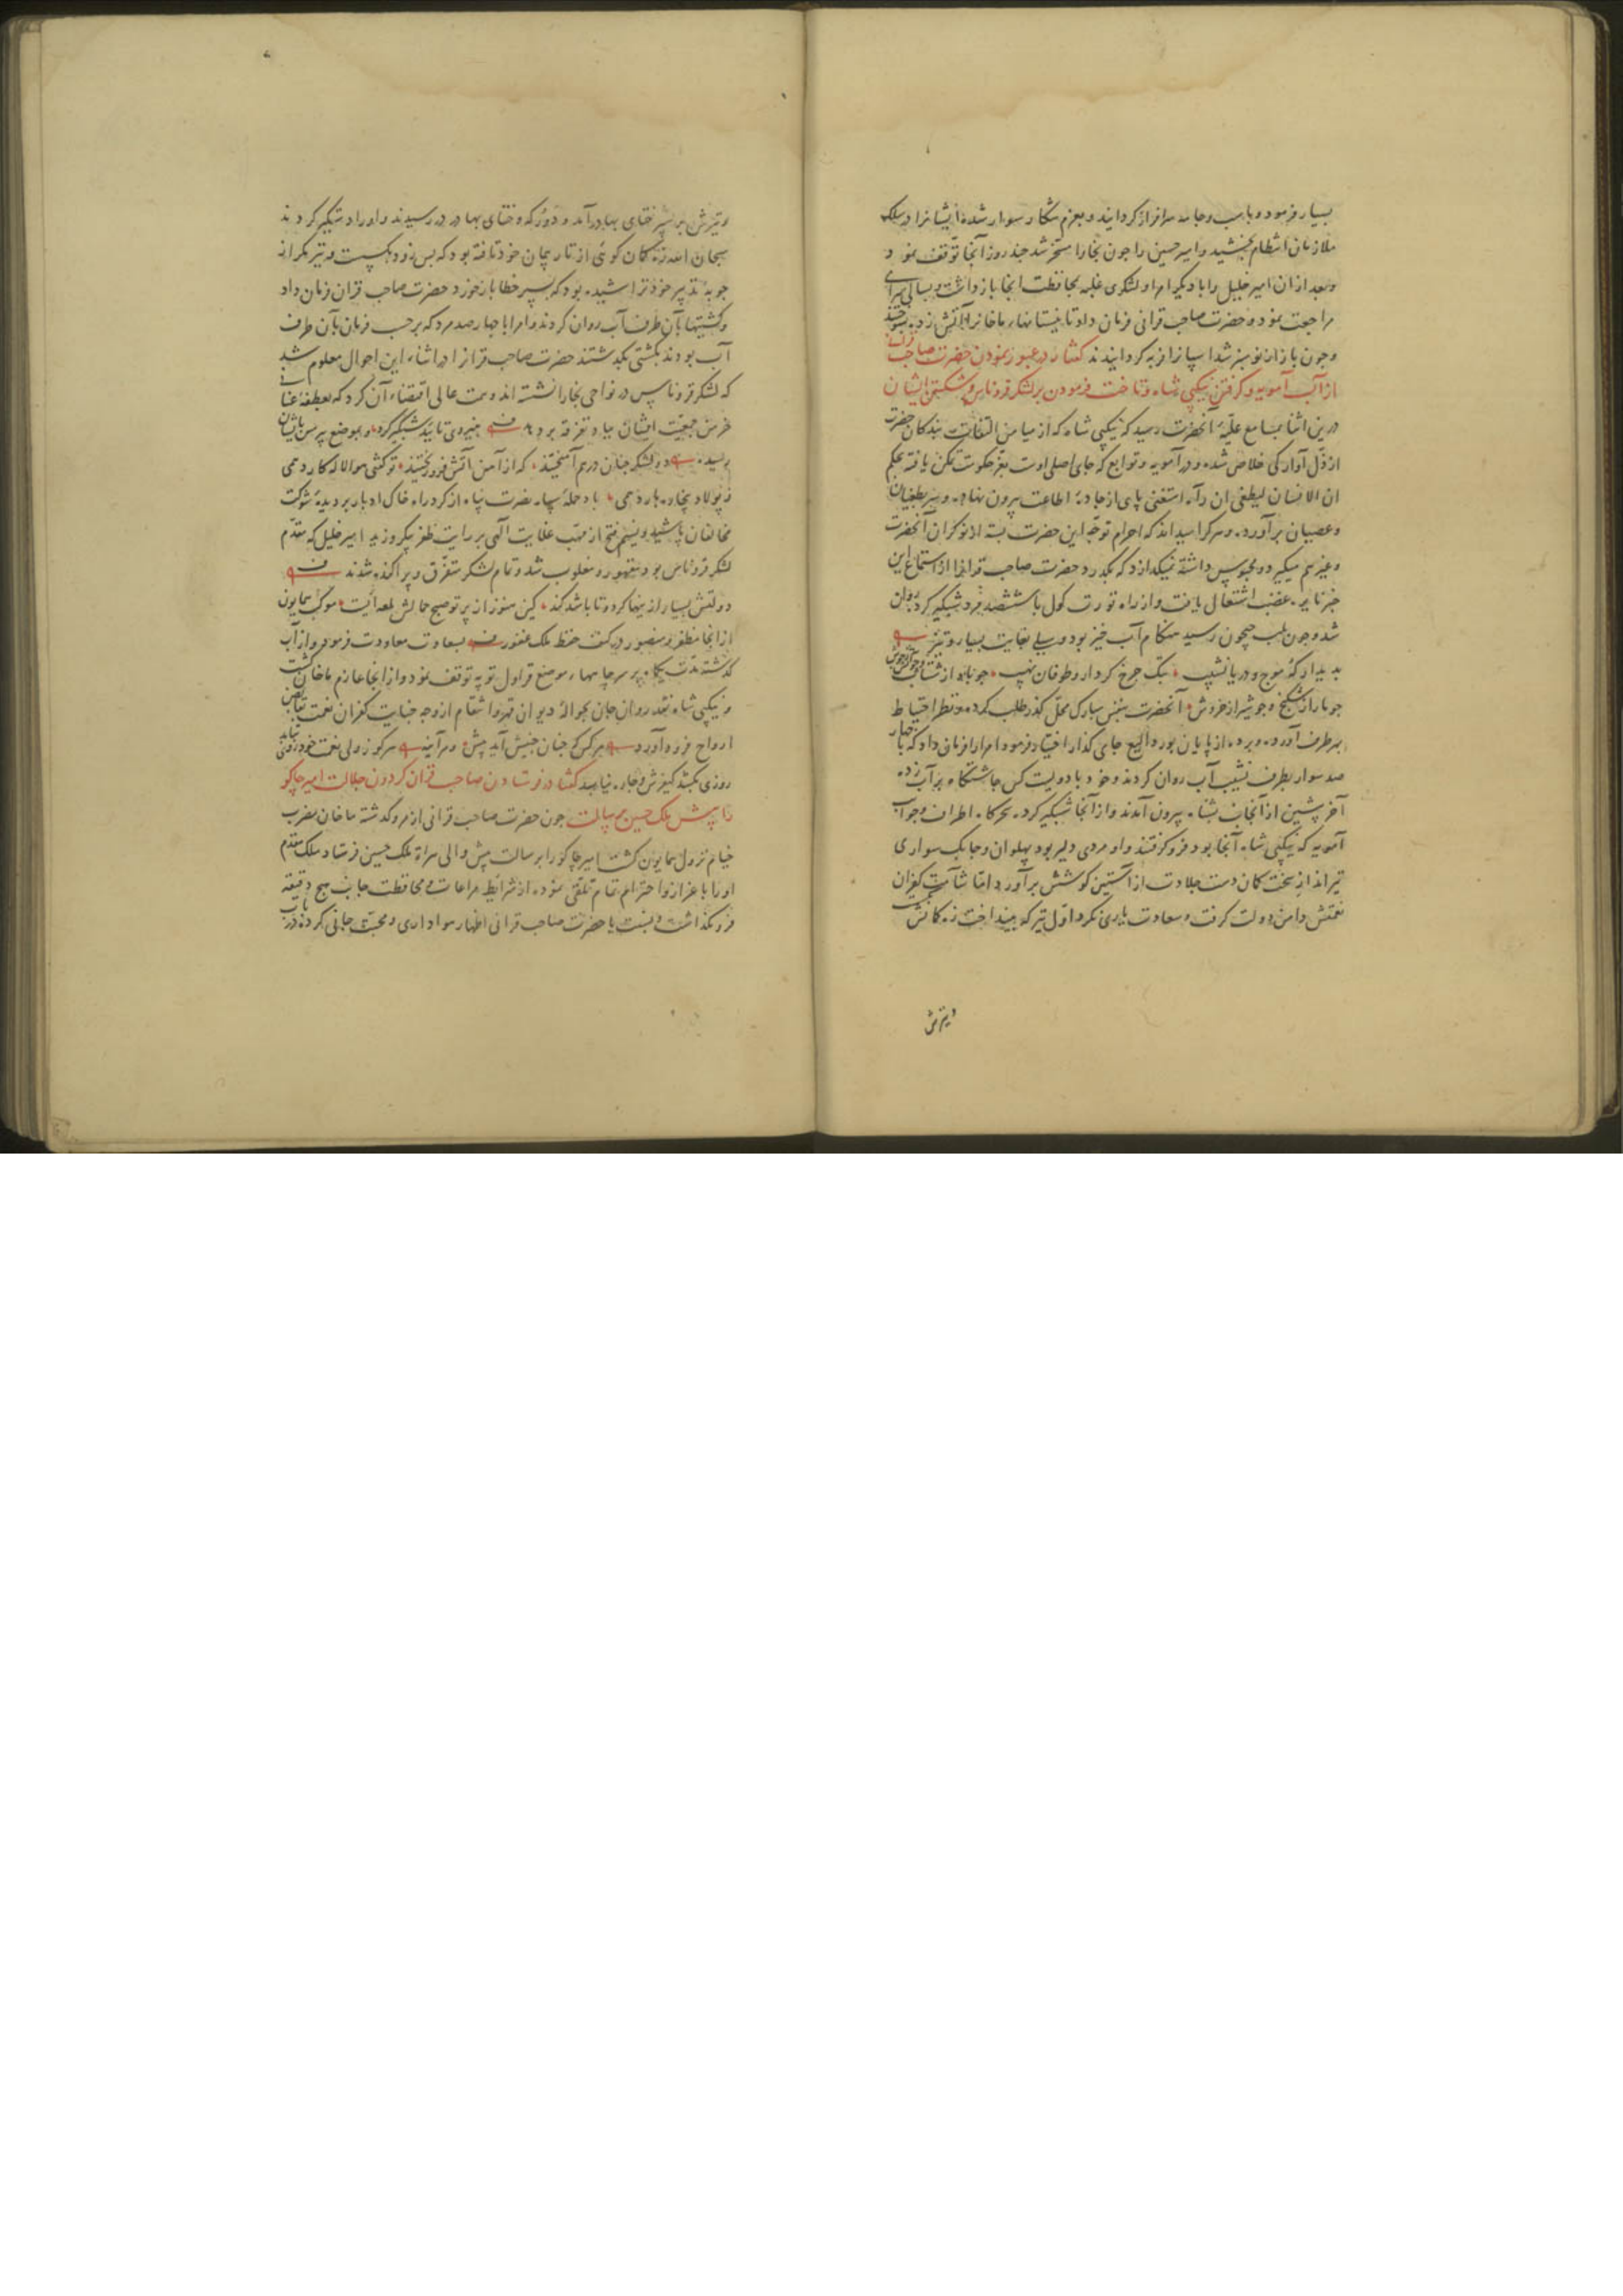 بسیار فرمود و باسب و جامه سرافراز کردانید و بعزم شکار سوار شده ایشانرا در سلک
ملازمان انتظام بخشید و امیر حسین را چون بخارا مسخر شد چند روز آنجا توقف نمود و
و بعد از آن امیر خلیل را با دیگر امرا و لشکری غلبه بمحافظت آنجا بازداشت و بسالی سرای
مراجعت نمود و حضرت صاحب قرانی فرمان داد تا نیستانهاء ماخانرا آتش زده بسوختند
و چون باز از نو سبز شد اسپانرا فربه کردانیدند کفتار در عبور نمودن حضرت صاحب قران
از آب آمویه و کرفتن نیکپی شاه و تاخت فرمودن بر لشکر قروناس و شکستن ایشان
درین اثنا بمسامع علیّه آنحضرت رسید که نیکپی شاه که از میامن التفات بندکان حضرت
از ذلّ آوارکی خلاص شده و در آمویه و توابع که جای اصلی اوست بعزّ حکومت تمکن یافته بحکم
ان الانسان لیطغی ان رآه استغنی پای از جادهٔ اطاعت بیرون نهاده و سر بطغیان
و عصیان برآورده و هر کرا میداند که احرام توجّه این حضرت بسته از نوکران آنحضرت
و غیرهم میکیرد و محبوس داشته نمیکذارد که بکذرد حضرت صاحب قرانرا از استماع این
خبر نایره غضب اشتعال یافت و از راه تورت کول با ششصد مرد شبکیر کرد روان
شد و چون بلب جیحون رسید هنکام آب خیز بود و سیلی بغایت بسیار و تیز
پدیدار که موج و دریا نشیب بتک چرخ کردار و طوفان نهیب چو باد از شتاب و چو آتش ز جوش
چو مار از شکنج و چو شیر از خروش آنحضرت بنفس مبارک محلّ کذر طلب کرده و نظر احتیاط
بهر طرف آورده و برده از پایان بوردالیغ جای کذار اختیار فرمود و امرا را فرمان داد که با چهار
صد سوار بطرف نشیب آب روان کردند و خود با دویست کس چاشتکاه بر آب زده
آخر پیشین از آنجانب بشناه بیرون آمدند و از آنجا شبکیر کرده سحرکاه اطراف و جوانب
آمویه که نیکپی شاه آنجا بود فرو کرفتند و او مردی دلیر بود پهلوان و چابک سواری
تیرانداز سخت کمان دست جلادت از آستین کوشش برآورد اما شآمت کفران
نعمتش دامن دولت کرفت و سعادت یاری نکرد اوّل تیر که بینداخت زه کمانش
و تیرش
و تیرش بر سپر ختای بهادر آمد و دورکه و ختای بهادر در رسیدند و او را دستکیر کردند
سبحان الله زه کمان کوئی از تار پیمان خود تافته بود که بس زود بکسست و تیر مکر از
چوبهٔ تدبیر خود تراشیده بود که بسپر خطا باز خورد حضرت صاحب قران فرمان داد
و کشتیها بآن طرف آب روان کردند و امرا با چهارصد مرد که برحسب فرمان بآن طرف
آب بودند بکشتی بکذشتند حضرت صاحب قرانرا در اثناء این احوال معلوم شد
که لشکر قروناس در نواحی بخارا نشسته اند و همت عالی اقتضاء آن کرد که بعطفه عنانی
خرمن جمعیت ایشان بباد تفرقه بردهد بنیروی تایید شبکیر کرد و بموضع پرمس بایشان
رسید دو لشکر چنان درهم آمیختند که از آهن آتش فرو ریختند تو کفتی هوا لاله کارد همی
ز پولاد بیجاده بارد همی باد حملهٔ سپاه نصرت پناه از کرد راه خاک ادبار بر دیدهٔ شوکت
مخالفان پاشید و نسیم فتح از مهبّ عنایت الهی بر رایت ظفر پیکر وزید امیر خلیل که مقدّم
لشکر قروناس بود مقهور و مغلوب شد و تمام لشکر متفرّق و پراکنده شدند
دولتش بسیار ازینها کرد و تا باشد کند کین هنوز از پرتو صبح جمالش لمعه ایست موکب همایون
از آنجا مظفر و منصور در کنف حفظ ملک غفور بسعادت معاودت فرمود و از آب
کذشته مدّت یکماه بر سر چاهها موضع قراول توپه توقف نمود و از آنجا عازم ماخان کشت
و نیکپی شاه نقد روان جان بحوالهٔ دیوان قهر و انتقام از وجه جنایت کفران نعمت بقابض
ارواح فرود آورد هر کس که چنان جنبش آید بیش و هر آینه هر کو ز ولی نعمت خود رو بتابد
روزی بکشد کیفرش و چاره نیابد کفتار در فرستادن صاحب قران کردون جلالت امیر جاکو
را پیش ملک حسین برسالت چون حضرت صاحب قرانی از مرو کذشته ماخان مضرب
خیام نزول همایون کشت امیر جاکو را برسالت پیش والی هراة ملک حسین فرستاد ملک مقدم
او را باعزاز و احترام تمام تلقّی نموده از شرایط مراعات و محافظت جانب هیچ دقیقه
فرو نکذاشت و نسبت با حضرت صاحب قرانی اظهار هواداری و محبّت جانی کرده در باب